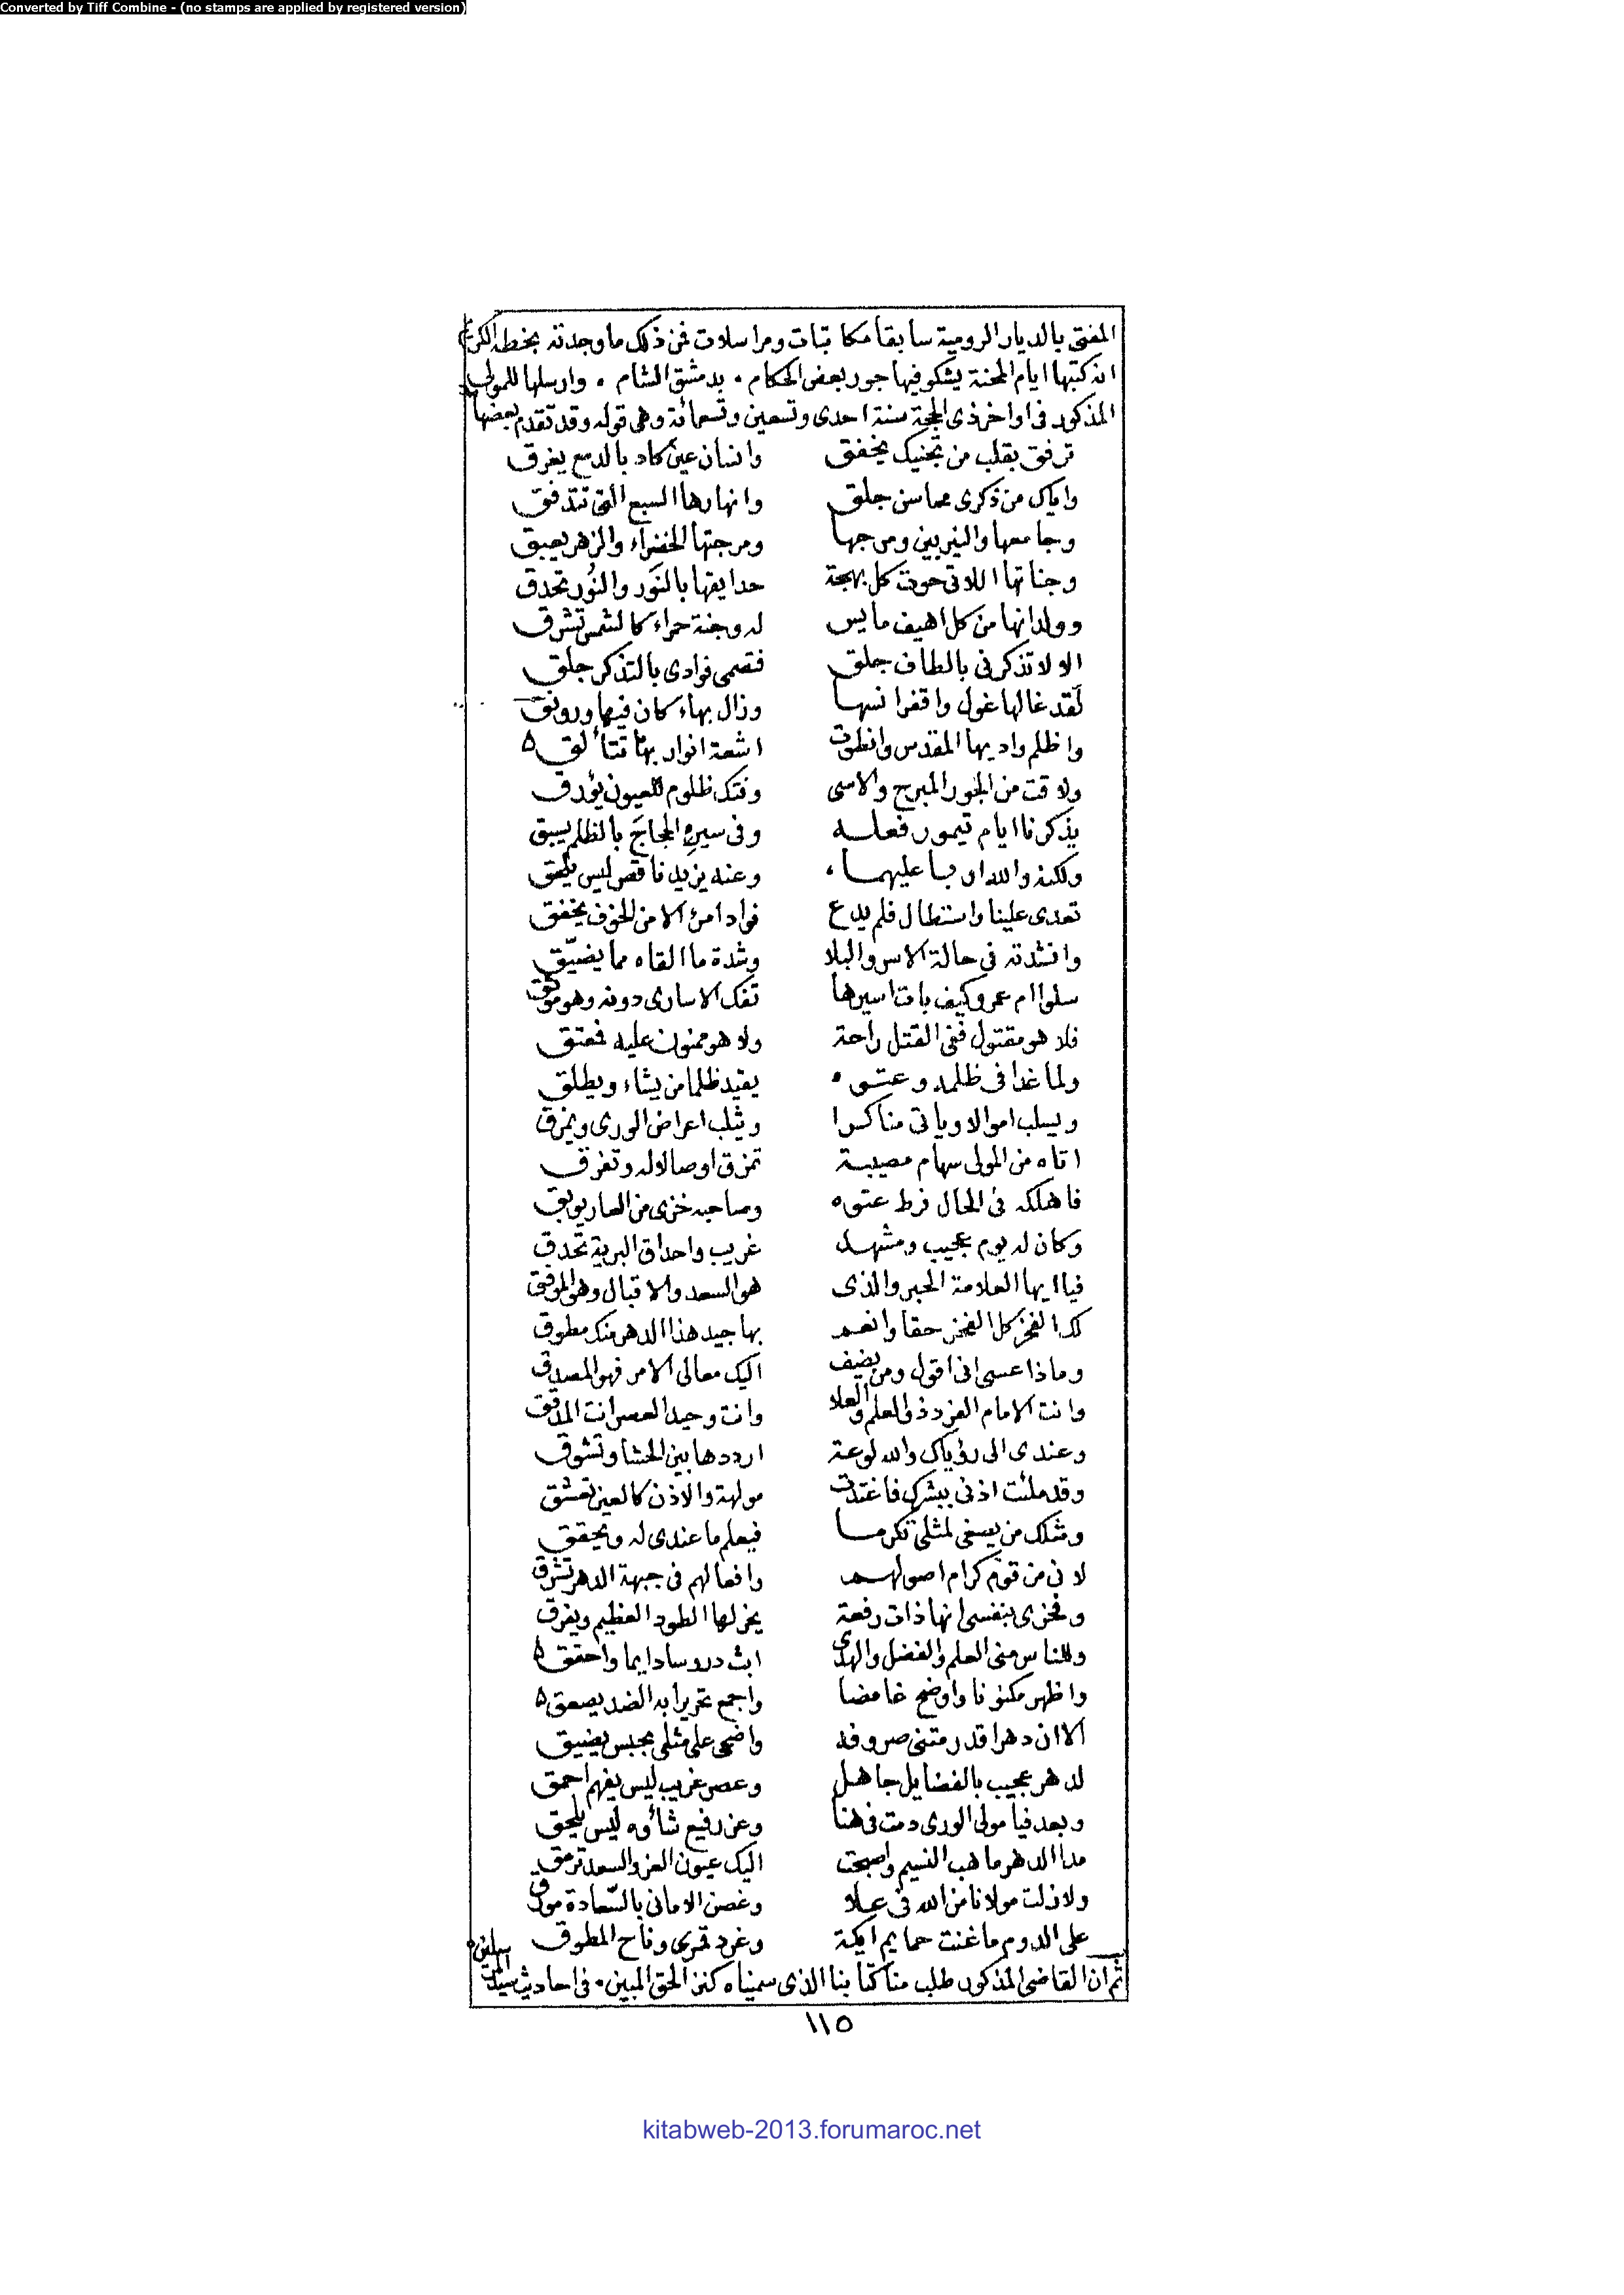 Converted by Tiff Combine - (no stamps are applied by registered version)
المفتى بالديار الرومية سابقا مكاتبات ومراسلات فمن ذلك ما وجدته بخطه الكريم
انه كتبها ايام المحنة يشكو فيها جور بعض الحكام . بدمشق الشام . وارسلها للمولى
المذكور فى اواخر ذى الحجة سنة احدى وتسعين وتسعمائة وهى قوله وقد تقدم بعضها
ترفق بقلب من تجنيك يخفق وانسان عين كاد بالدمع يغرق
واياك من ذكرى محاسن جلق وانهارها السبع التى تتدفق
وجامعها والنيربين ومرجها ومرجتها الخضراء والزهر يعبق
وجناتها اللاتى حوت كل بهجة حدايقها بالنَور والنُور تحدق
وولدانها من كل اهيف مايس له وجنة حمراء كالشمس تشرق
الا لا تذكرنى بالطاف جلق فقصمى فوادى بالتذكر جلق
لقد غالها غول واقفر انسها وزال بهاء كان فيها ورونق
واظلم واديها المقدس وانطوت اشعة انوار بها تتألق
ولاقت من الجور المبرح والاسى وفتك ظلوم للعيون يؤرق
يذكرنا ايام تيمور فعله وفى سيره الحجاج بالظلم يسبق
ولكنه والله اربا عليهما ، وعنه يزيد ناقص ليس يلحق
تعدى علينا واستطال فلم يدع فواد امرئ الا من الخوف يخفق
وانشدته فى حالة الاسر والبلا وشدة ما القاه مما يضيّق
سلوا ام عمرو كيف بات اسيرها تفك الاسارى دونه وهو موثق
فلا هو مقتول ففى القتل راحة ولا هو ممنون عليه فمعتق
ولما غدا فى ظلمه وعتوه يقيد ظلما من يشاء ويطلق
ويسلب اموالا وياتى مناكرا ويثلب اعراض الورى ويمزق
اتاه من المولى سهام مصيبة تمزق اوصالا له وتفرق
فاهلكه فى الحال فرط عتوه وصاحبه خزى من العار يوبق
وكان له يوم عجيب ومشهد غريب واحداق البرية تحدق
فيا ايها العلامة الحبر والذى هو السعد والاقبال وهو الموفق
لك الفخر كل الفخر حقا وانعم بها جيد هذا الدهر منك مطوق
وماذا عسى انى اقول ومن يضيف اليك معالى الامر فهو المصدق
وانت الامام الفرد ذو العلم والعلا وانت وحيد العصر انت المدقق
وعندى الى رؤياك والله لوعة ارددها بين الحشا وتشوق
وقد ملئت اذنى ببشرك فاغتدت مولهة والاذن كالعين تعشق
ومثلك من يصغى لمثلى تكرما فيعلم ما عندى له ويحقق
لانى من قوم كرام اصولهم وافعالهم فى جبهة الدهر تشرق
وفخرى بنفسى انها ذات رفعة يخر لها الطود العظيم ويفرق
وللناس منى العلم والفضل والهدى ابث دروسا دايما واحقق
واظهر مكنونا واوضح غامضا واجمع تحريرا به الضد يصعق
الا ان دهرا قد رمتنى صروفه واضحى على مثلى بحبس يضيق
لدهر عجيب بالفضايل جاهل وعصر غريب ليس يفهم احمق
وبعد فيا مولى الورى دمت فى هنا وعز رفيع شأوه ليس يلحق
مدا الدهر ما هب النسيم واصبحت اليك عيون العز والسعد ترمق
ولا زلت مولانا من الله فى علا وغصن الامانى بالسّعادة مورق
على الدوم ما غنت حمايم ايكة وغرد قمرى وناح المطوق
ثم ان القاضى المذكور طلب منا كتابنا الذى سميناه كنز الحق المبين . فى احاديث سيد المرسلين
١١٥
kitabweb-2013.forumaroc.net